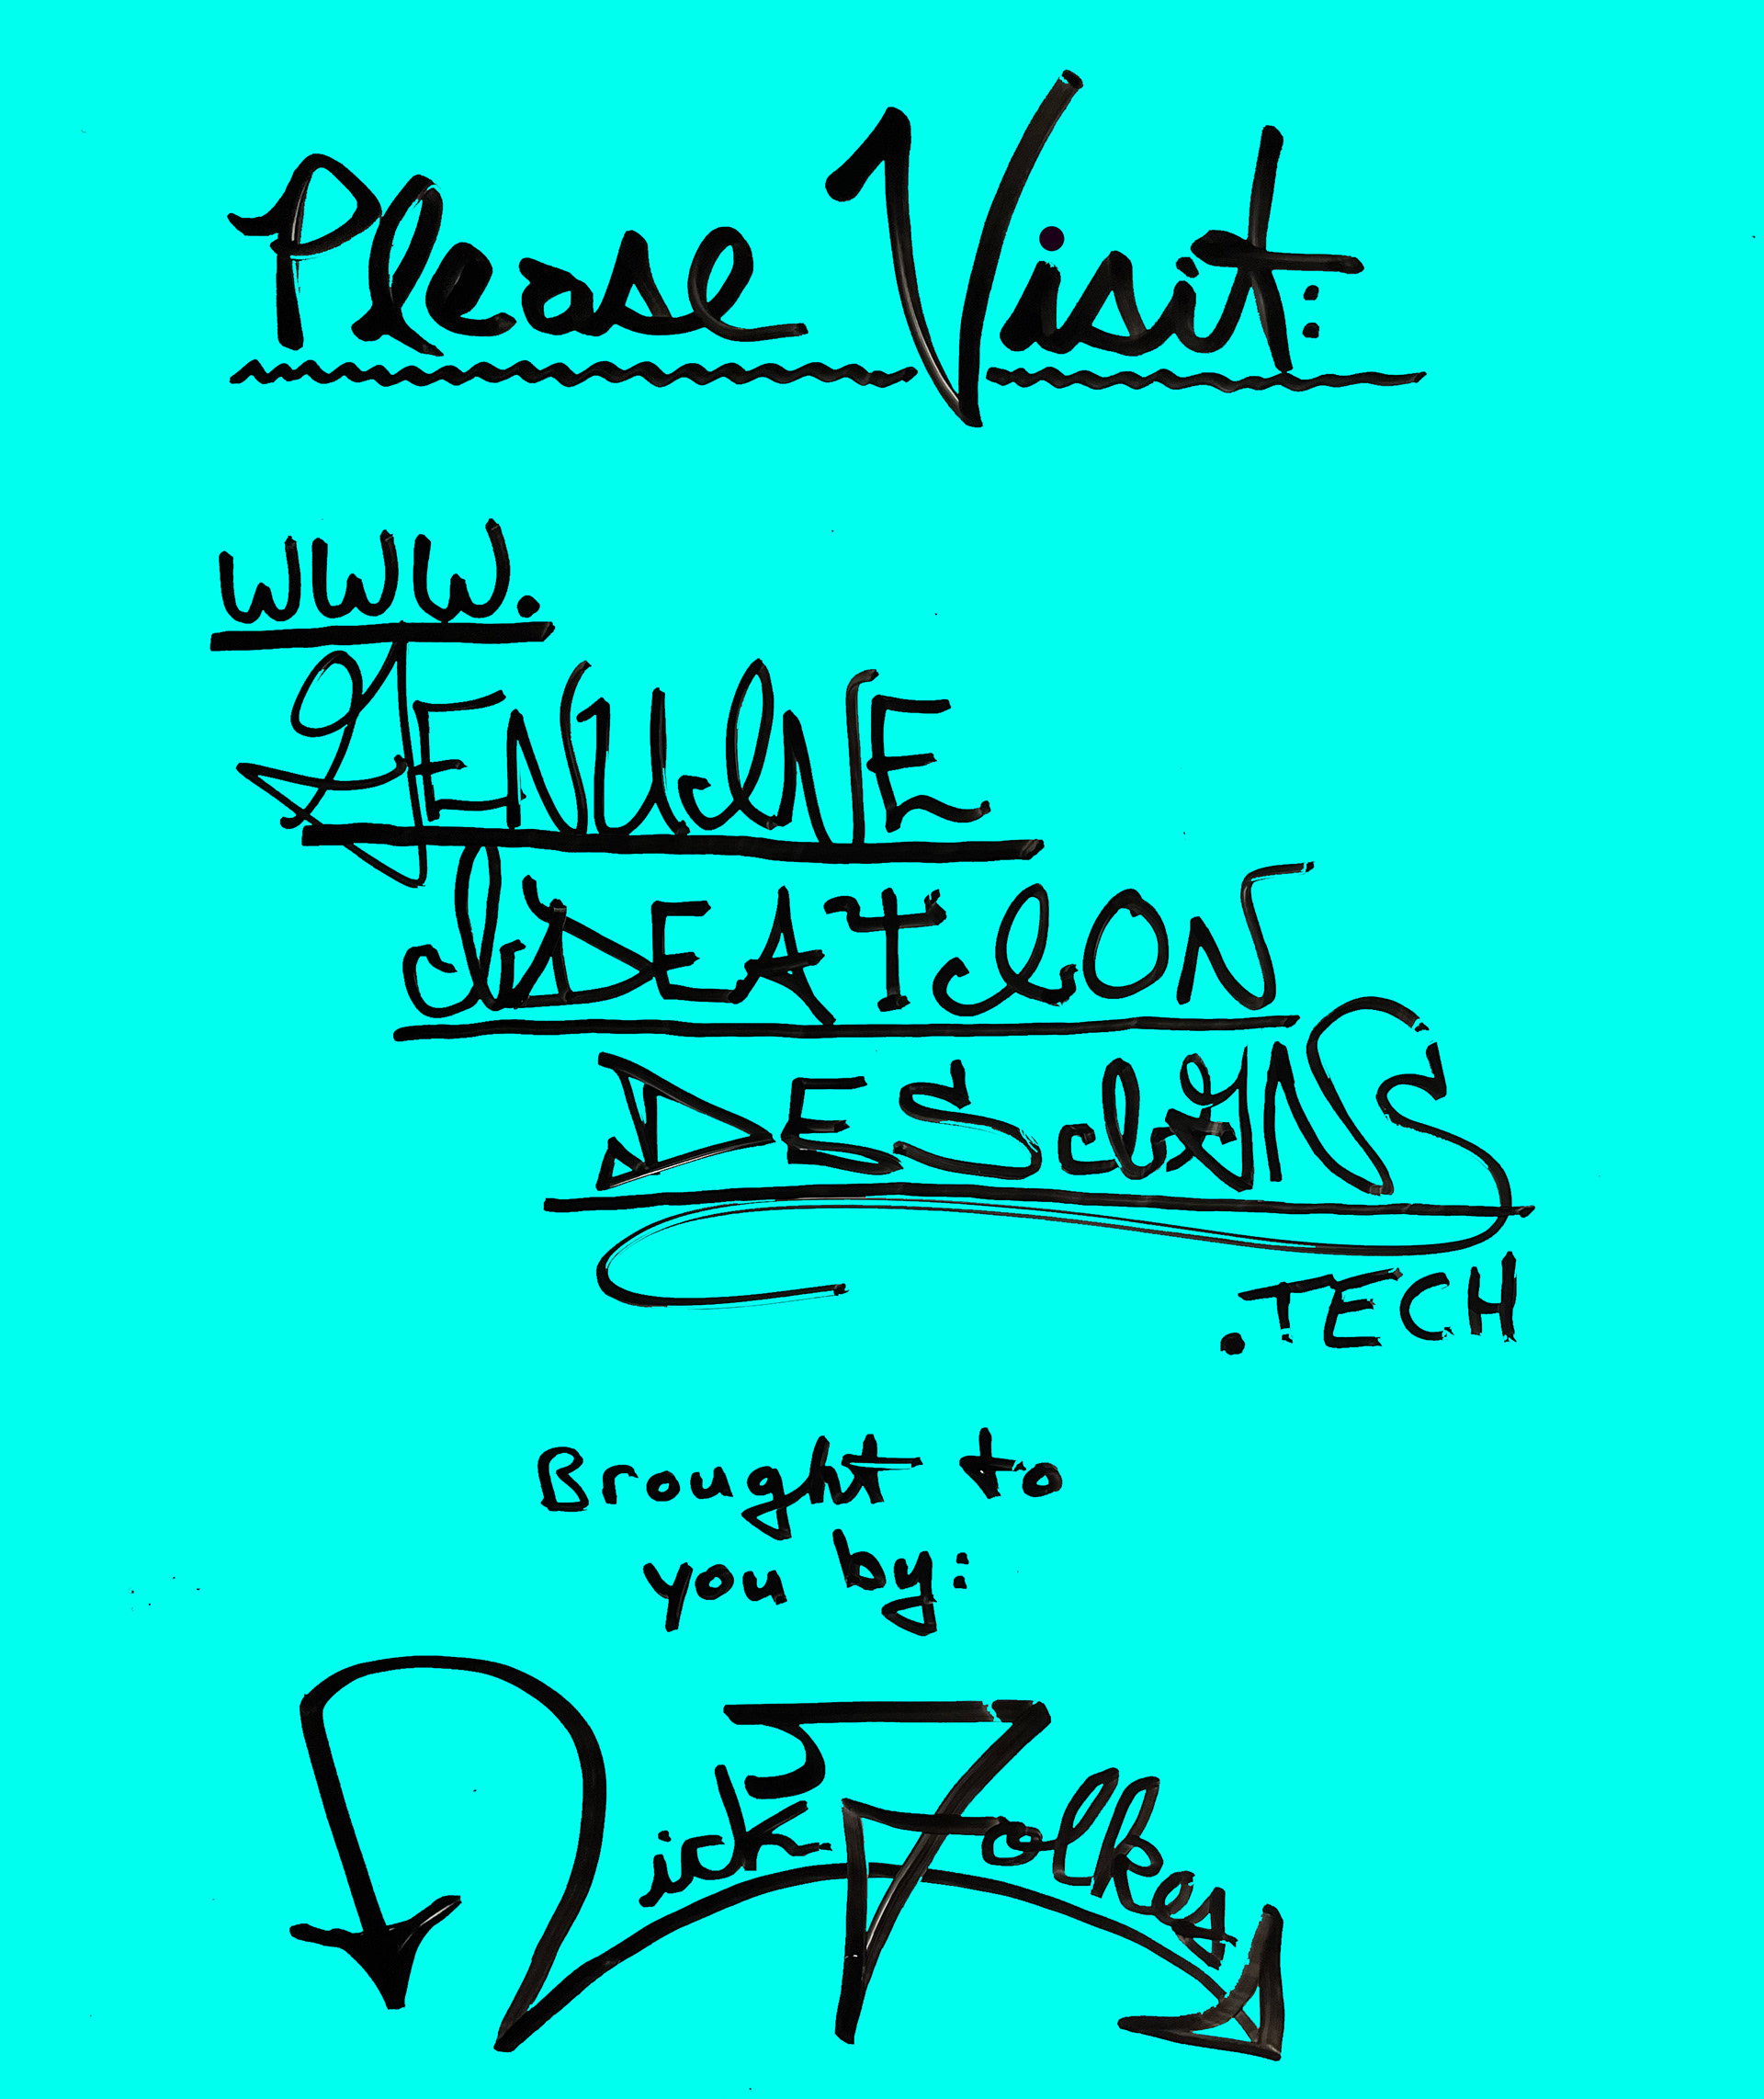 Please Visit:
www.
GENUINE
IDEATION
DESIGNS
.TECH
Brought to
you by:
Dick Folkes